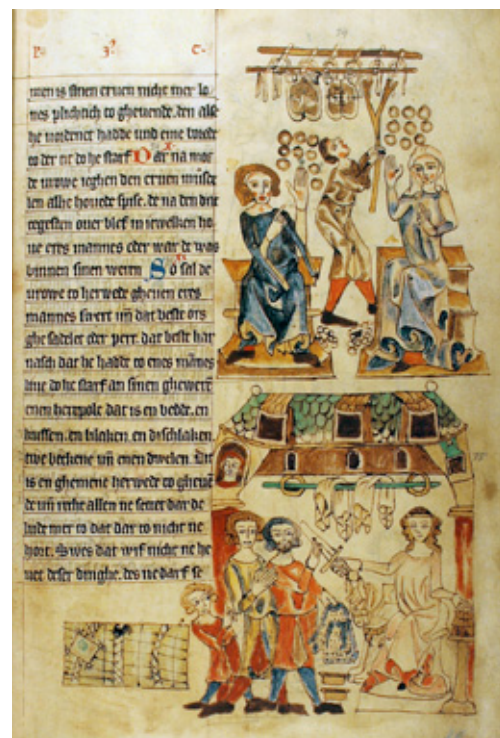 P. 3. C.
men is sinen eruen nicht mer lo
nes plichtich to gheuende. den alse
he uordenet hadde und eme
er he starf Dar na mot
de urowe ieghen den eruen
len alle houede spise. de na den
tegesten ouer blef in iewelken ho
ue eres mannes oder war de was
binnen sinen weren So sal de
urowe to herwede gheuen eres
mannes swert un dat beste ors
ghe sadelet oder pert. dat beste har
nasch dat he hadde to enes mānes
liue do he starf an sinen ghewere
enen herepole dat is en bedde. en
kussen. en lilaken. en dischlaken
twe beckene un enen dwelen. Dit
is en ghemene herwede to gheue
de un recht allen ne settet dar de
lude mer to dat dar to nicht ne
hort. Swes dat wif nicht ne he
uet deser dinghe. des ne darf se